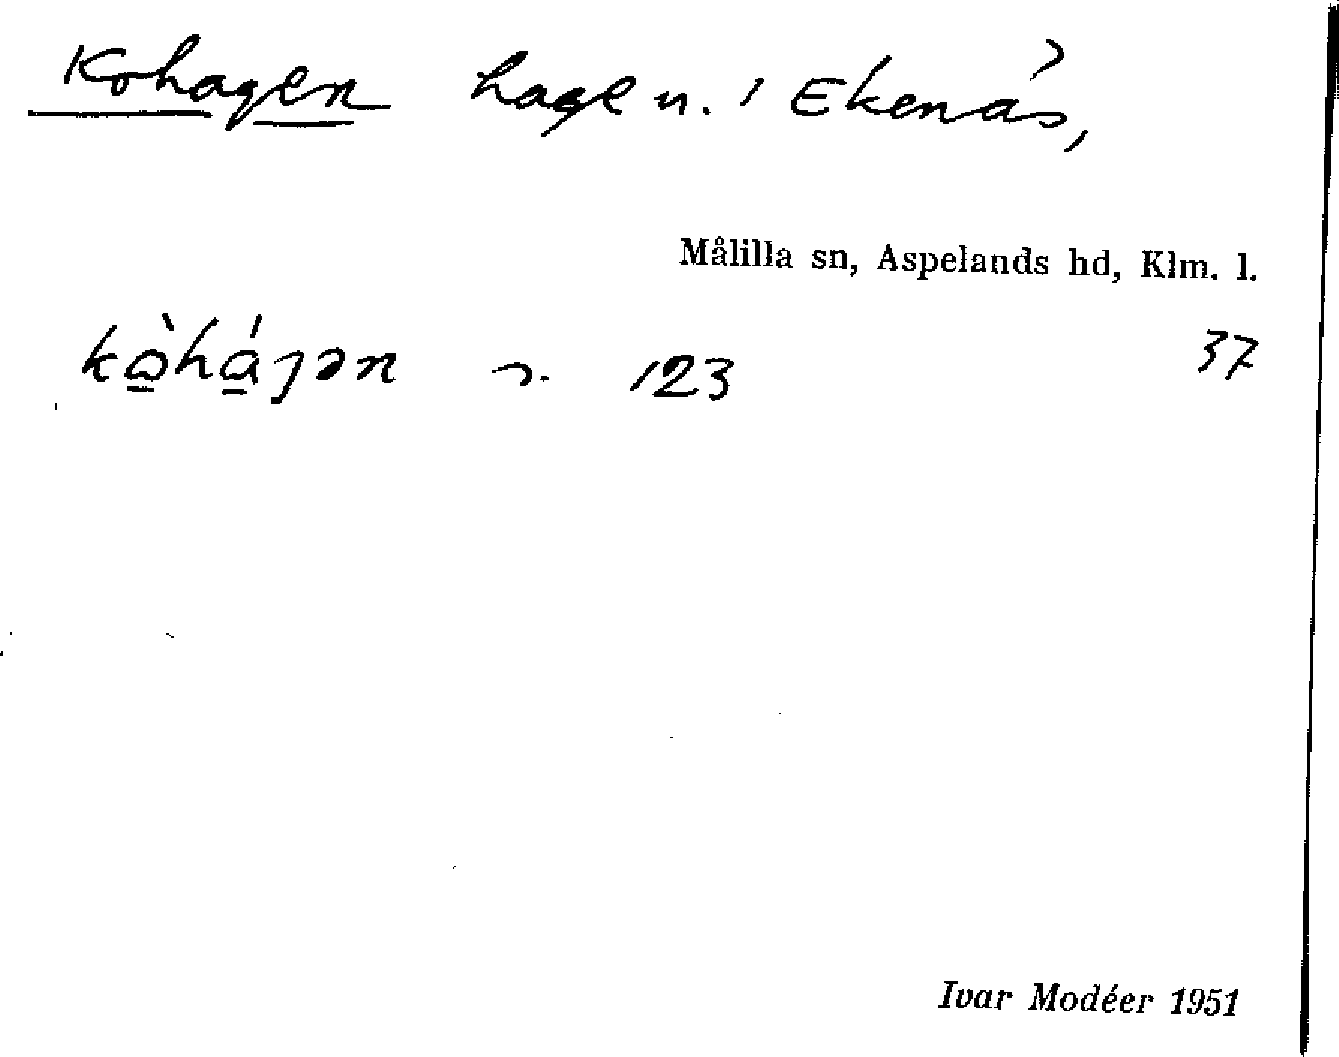 Kohagen hage u. Ekenäs,
Målilla sn, Aspelands hd, Klm. l.
kòhájən 123 37
Ivar Modéer 1951